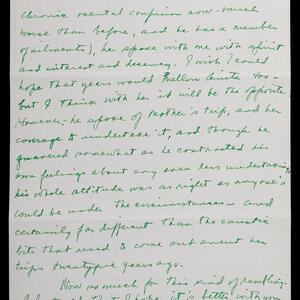 chronic mental confusion now - much
worse than before, and he has a number
of ailments), he spoke with me with spirit
and interest and decency. I wish I could
hope that years would mellow Anita too -
but I think with her it will be the opposite.
However, he spoke of Mother's trip, and her
courage to undertake it, and though he
quavered somewhat as he contrasted his
own feelings about any even less undertaking,
his whole attitude was as right as anyone's
could be under the circumstances - and
certainly far different than the caustic
bits that used to come out anent her
trips twenty-five years ago.
Now so much for this kind of rambling.
it is better with you